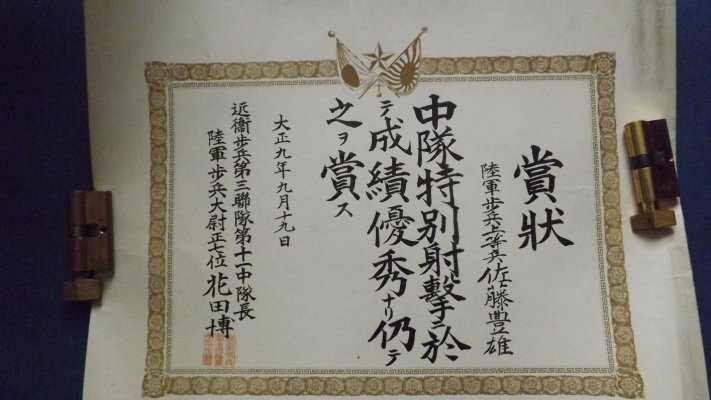 賞狀
陸軍歩兵上等兵佐藤豊雄
中隊特別射擊ニ於
テ成績優秀ナリ仍テ
之ヲ賞ス
大正九年九月十九日
近衞歩兵第三聯隊第十一中隊長
陸軍歩兵大尉正七位花田博